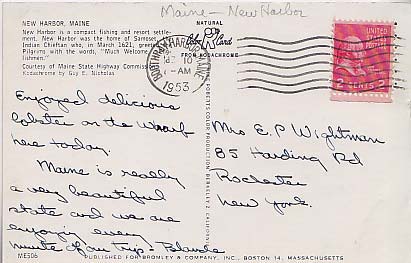 Maine - New Harbor
NEW HARBOR, MAINE
New Harbor is a compact fishing and resort settle-
ment. New Harbor was the home of Samoset,
Indian Chieftan who, in March 1621, greeted
Pilgrims with the words, "Much Welcome
lishmen."
Courtesy of Maine State Highway Commission
Kodachrome by Guy E. Nicholas
NATURAL
Color Card
FROM KODACHROME
HARBOR, MAINE
10
-AM
1953
UNITED STATES
POSTAGE
2 CENTS 2
Enjoyed delicious
lobster on the wharf
here today.
Maine is really
a very beautiful
state and we are
enjoying every
minute of our trip - Blanche
Mrs E. P. Wightman
85 Harding Rd
Rochester
New York.
COLOR PRODUCTION BERKELEY 2, CALIFORNIA
ME506
PUBLISHED FOR BROMLEY & COMPANY, INC., BOSTON 14, MASSACHUSETTS